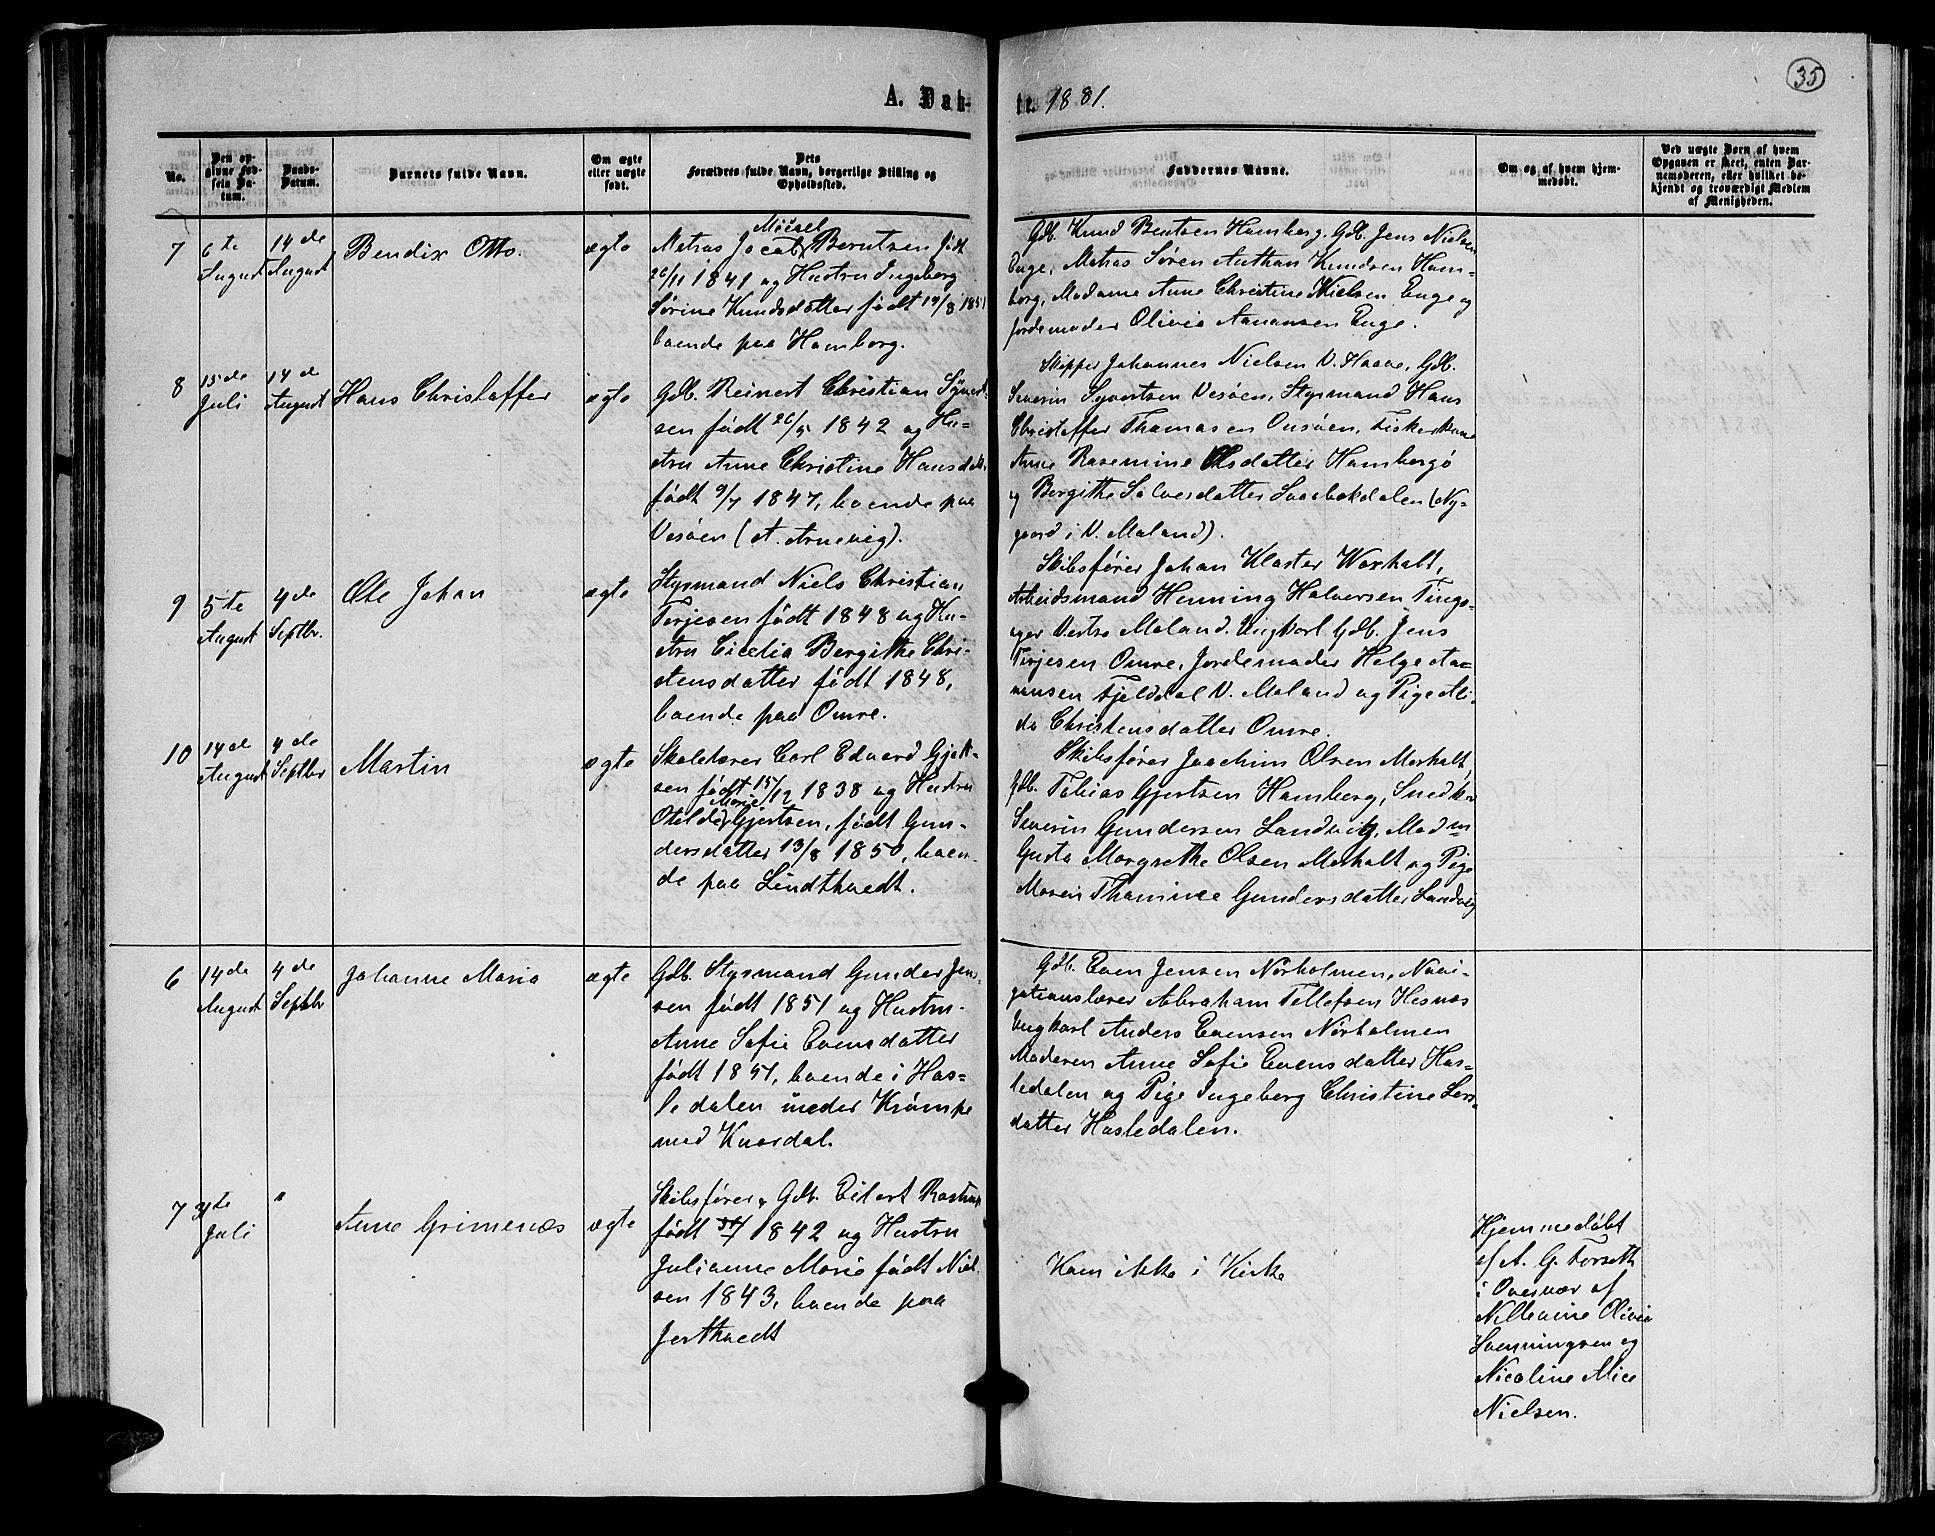 35
A. Døb-
te. 1881.
No.
Den op-
givne Fød-
sels Da-
tum.
Daabs-
Datum.
Barnets fulde Navn.
Om ægte
eller uægte
født.
Dets
Forældres fulde Navn, borgerlige Stilling og
Opholdssted.
Faddernes Navne.
Om og af hvem hjem-
medøbt.
Ved uægte Børn af hvem
Opgaven er skeet, enten Bar-
nemoderen, eller hvilket be-
kjendt og troværdigt Medlem
af Menigheden.
7
6te
August
14de
August
Bendix Otto.
ægte
Matros Jocab Berntsen født
26/11 1841 og Hustru Ingeborg
Sørine Knudsdatter født 14/8 1851
boende paa Hamborg.
Gdb. Knud Bentsen Hamborg, Gdb. Jens Nielsen
Enge, Matros Søren Anthon Knudsen Ham-
borg, Madame Anne Christine Nielsen Enge og
Jordemoder Olivia Aanansen Enge.
8
15de
Juli
14de
August
Hans Christoffer
ægte
Gdb. Reinert Christian Syvert-
sen født 26/5 1842 og Hu-
stru Anne Christine Hansdatt.
født 9/7 1847, boende paa
Vesøen (A. Arnevig).
Skipper Johannes Nielsen V. Haave, Gdb.
Severin Syvertsen Vesøen, Styrmand Hans
Christoffer Thomasen Ousøen, Fiskerkone
Anne Rasemine Olsdatter Hamborgø
og Bergithe Salvesdatter Svaabekdalen (Ny-
gaard i V. Moland).
9
5te
August
4de
Septbr.
Ole Johan
ægte
Styrmand Niels Christian
Terjesen født 1848 og Hu-
stru Cicelia Bergithe Chri-
stensdatter født 1848,
boende paa Omre.
Skibsfører Johan Kloster Woxholt,
Arbeidsmand Henning Halvorsen Tings-
ager Vestre Moland. Ungkarl Gdb. Jens
Terjesen Omre, Jordemoder Helge Aa-
nansen Fjelddal V. Moland og Pige Ali-
da Christensdatter Omre.
10
14de
August
4de
Septbr
Martin
ægte
Skolelærer Carl Edvard Gjert-
sen født 15/12 1838 og Hustru
Marie
Otilde Gjertsen, født Gun-
dersdatter 13/8 1850, boen-
de paa Lindtvedt.
Skibsfører Joachim Olsen Moholt,
Gdb. Tobias Gjertsen Hamborg, Snedker
Severin Gundersen Landvig, Madm
Gusta Margrethe Olsen Moholt og Pige
Maren Thomine Gundersdatter Landvig
6
14de
August
4de
Septbr
Johanne Marie
ægte
Gdb. Styrmand Gunder Jen-
sen født 1851 og Hustru
Anne Sofie Evensdatter
født 1857, boende i Has-
ledalen under Krømpe
med Knardal.
Gdb. Even Jensen Nørholmen, Navi-
gationslærer Abraham Tellefsen Hesnæs
Ungkarl Anders Evensen Nørholmen
Moderen Anne Sofie Evensdatter Has-
ledalen og Pige Ingeborg Christine Lars-
datter Hasledalen.
7
31te
Juli
"
Anne Grimenæs
ægte
Skibsfører, Gdb. Eilert
født 1842 og Hustru
Julianne Marie født Niel-
sen 1843, boende paa
Jortvedt
Kom ikke i Kirke
Hjemmedøbt
af A. G. Forseth
i Overvær af
Olivia
Svenningsen og
Nicoline Alice
Nielsen.